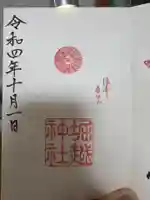 堀越
神社
令和四年十月一日